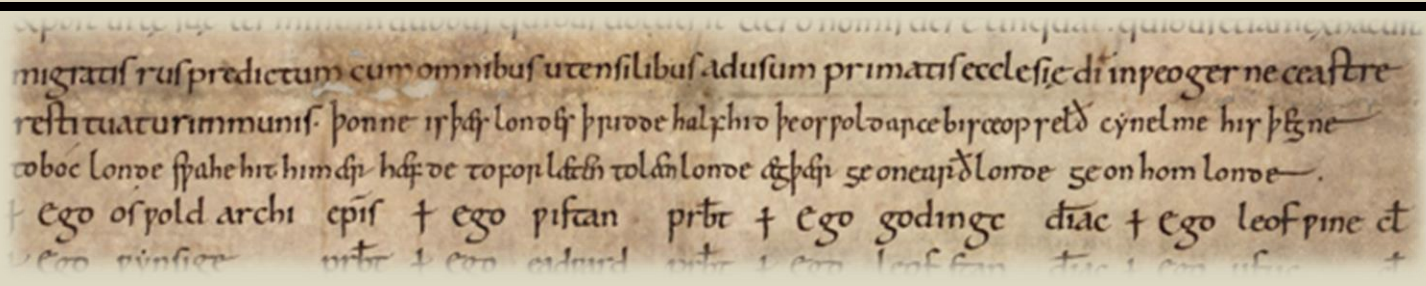 migratis rus predictum cum omnibus utensilibus ad usum primatis ecclesię dī in ƿeogerneceastre
restituatur immunis· þonne is þær londes þridde half hid þe osƿold arcebisceop seleð cẏnelme his þegne
to bóc londe sƿa he hit him ær hæfde to forlæten to lænlonde ægþær ge on earð londe ge on hom londe.
† ego osƿold archi epīs † ego ƿistan prƀt † ego godingc dīac † ego leofƿine cł
† ego ƿẏnsige prƀt † ego prƀt † ego leofstan dīac † ego cł